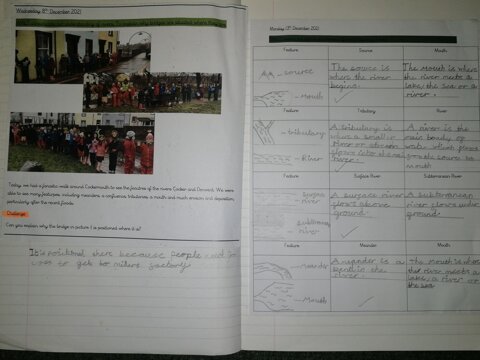 Wednesday 8th December 2021
Today we had a fantastic walk around Cockermouth to see the features of the rivers Cocker and Derwent. We were
able to see many features, including meanders, a confluence, tributaries, a mouth and much erosion and deposition,
particularly after the recent floods.
Challenge
Can you explain why the bridge in picture 1 is positioned where it is?
It is positioned there because people
to get to millers factory
Monday 13th December 2021
Feature Source Mouth
source
mouth
The source is
where the river
begins.
The mouth is where
the river meets a
lake, the sea or a
river.
Feature Tributary River
tributary
River
A tributary is
where a smaller
river or stream
flows into the main
river.
A river is the
main body of
water which flows
from source to
mouth
Feature Surface River Subterranean River
surface
river
subterranean
river
A surface river
flows above
ground.
A subterranean
river flows under
ground.
Feature Meander Mouth
meander
Mouth
A meander is a
bend in the
river.
The mouth is where
the river meets a
lake, a river or
the sea